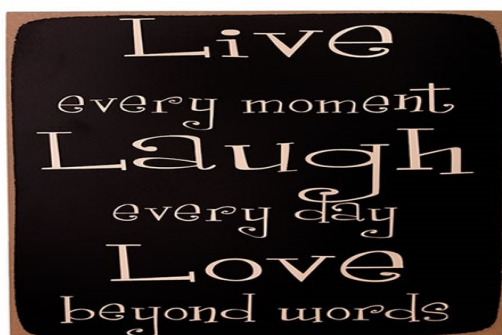 Live
every moment
Laugh
every day
Love
beyond words